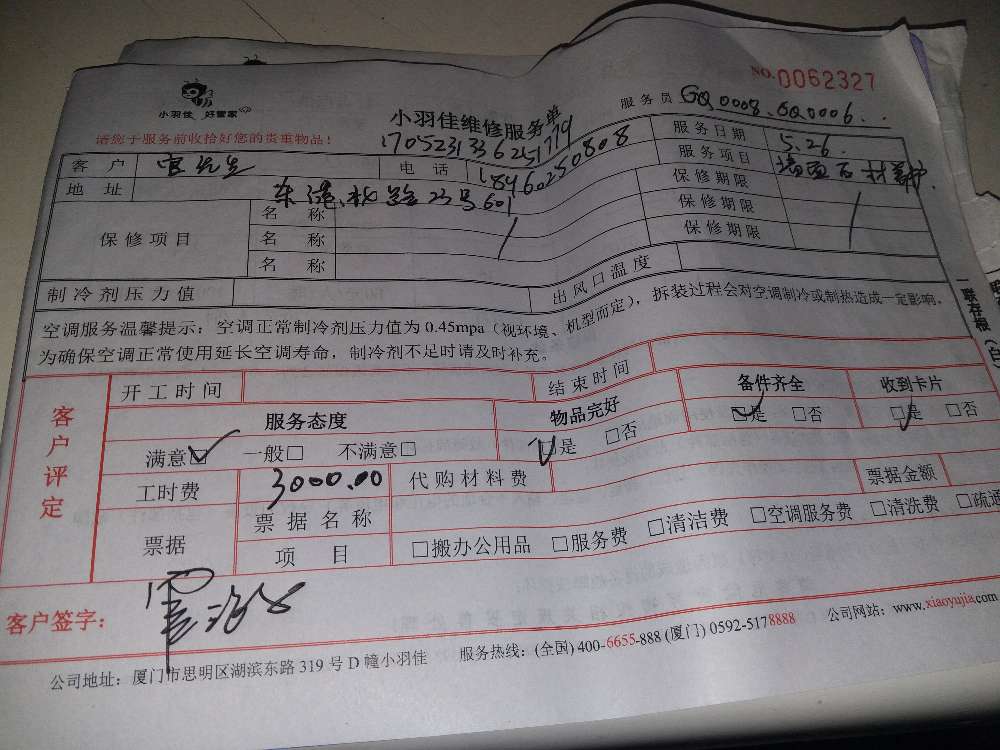 NO.0062327
小羽佳 好管家
小羽佳维修服务单
服务员 GQ0008.GQ0006.
请您于服务前收拾好您的贵重物品！
1705231336251779
客户 先生 电话 18960250808 服务日期 5.26.
服务项目
地址 东 路23号601 保修期限
保修项目 名称 / 保修期限 /
名称 保修期限
名称
制冷剂压力值 出风口温度
空调服务温馨提示：空调正常制冷剂压力值为 0.45mpa（视环境、机型而定），拆装过程会对空调制冷或制热造成一定影响，
为确保空调正常使用延长空调寿命，制冷剂不足时请及时补充。
一联存根（白）
客户评定
开工时间 结束时间
服务态度 物品完好 备件齐全 收到卡片
满意☑ 一般□ 不满意□ ☑是 □否 ☑是 □否 ☑是 □否
工时费 3000.00 代购材料费 票据金额
票据 票据名称
项目 □搬办公用品 □服务费 □清洁费 □空调服务费 □清洗费 □疏通
客户签字：
公司地址：厦门市思明区湖滨东路 319 号 D 幢小羽佳 服务热线：(全国) 400-6655-888 (厦门) 0592-5178888 公司网站：www.xiaoyujia.com